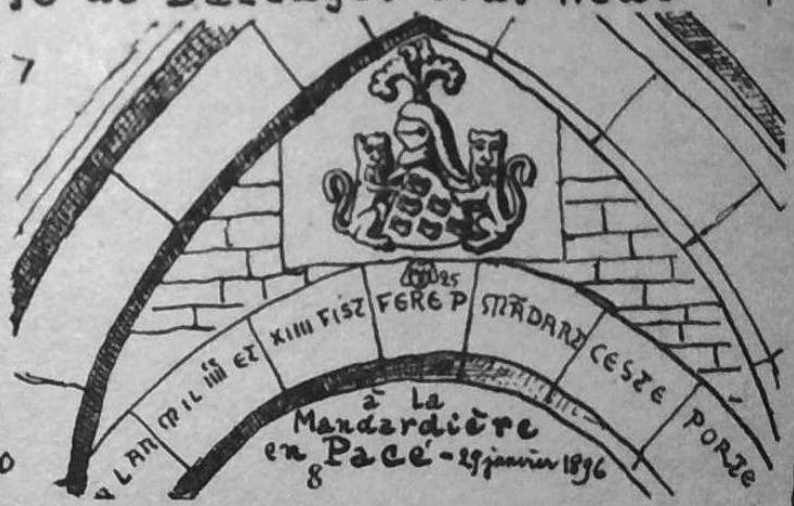 7
25
VLAN MIL IIII ET XIIII FIST FERE P MÃDART CESTE PORTE
cc
à La
Mandardière
en Pacé - 29 janvier 1896
8